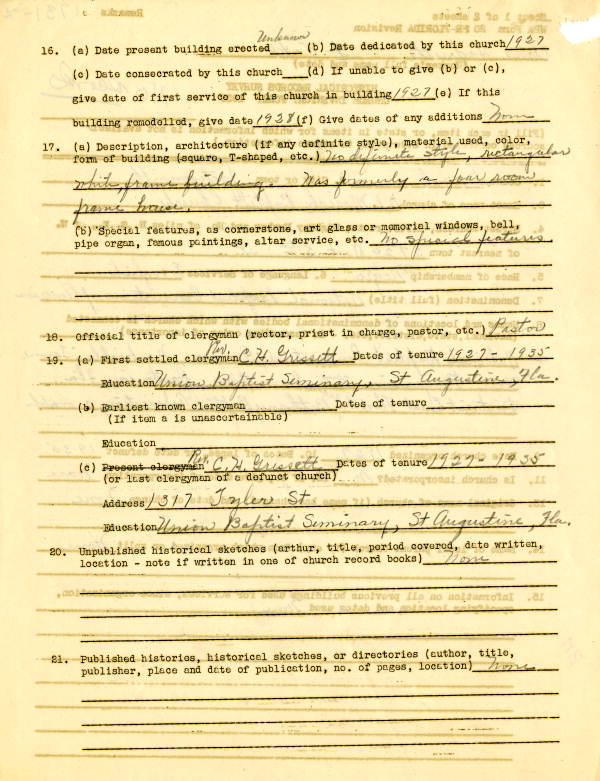 Unknown
16. (a) Date present building erected____ (b) Date dedicated by this church 1927
(c) Date consecrated by this church____(d) If unable to give (b) or (c),
give date of first service of this church in building 1927 (e) If this
building remodelled, give date 1928 (f) Give dates of any additions None
17. (a) Description, architecture (if any definite style), material used, color,
form of building (square, T-shaped, etc.) No definite style, rectangular
white, frame building. Was formerly a four room
frame house.
(b) Special features, as cornerstone, art glass or memorial windows, bell,
pipe organ, famous paintings, altar service, etc. No special features.
18. Official title of clergyman (rector, priest in charge, pastor, etc.) Pastor
19. (a) First settled clergyman Rev. C. H. Grissett Dates of tenure 1927-1935
Education Union Baptist Seminary, St Augustine, Fla.
(b) Earliest known clergyman____ Dates of tenure____
(If item a is unascertainable)
Education____
(c) Present clergyman Rev. C. H. Grissett Dates of tenure 1927-1935
(or last clergyman of a defunct church)
Address 1317 Tyler St
Education Union Baptist Seminary, St Augustine, Fla.
20. Unpublished historical sketches (arthur, title, period covered, date written,
location - note if written in one of church record books) None
21. Published histories, historical sketches, or directories (author, title,
publisher, place and date of publication, no. of pages, location) None